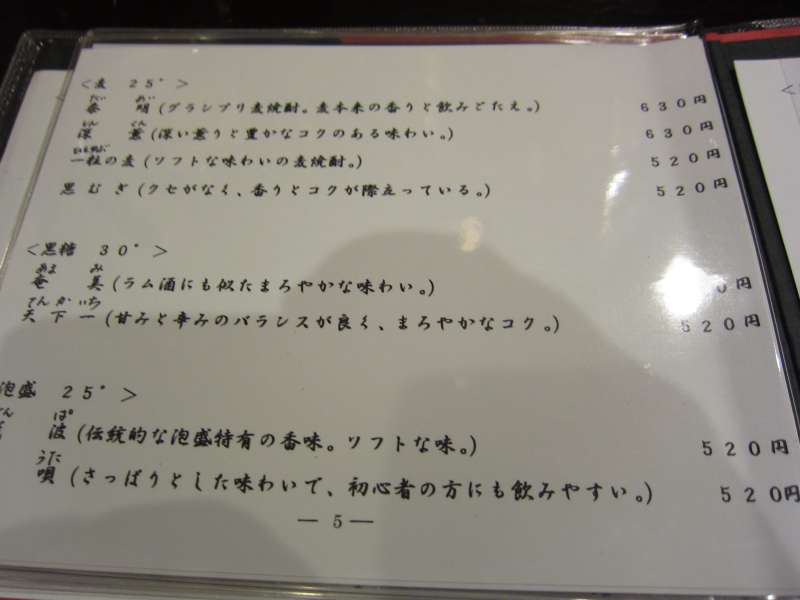 <麦 25°>
だい あい
泰明(グランプリ麦焼酎。麦本来の香りと飲みごたえ。) 630円
しん くん
深薫(深い薫りと豊かなコクのある味わい。) 630円
一粒の麦(ソフトな味わいの麦焼酎。) 520円
黒むぎ(クセがなく、香りとコクが際立っている。) 520円
<黒糖 30°>
あま み
奄美(ラム酒にも似たまろやかな味わい。) 0円
てんかいち
天下一(甘みと辛みのバランスが良く、まろやかなコク。) 520円
泡盛 25°>
ん ぱ
波(伝統的な泡盛特有の香味。ソフトな味。) 520円
うた
唄(さっぱりとした味わいで、初心者の方にも飲みやすい。) 520円
— 5 —